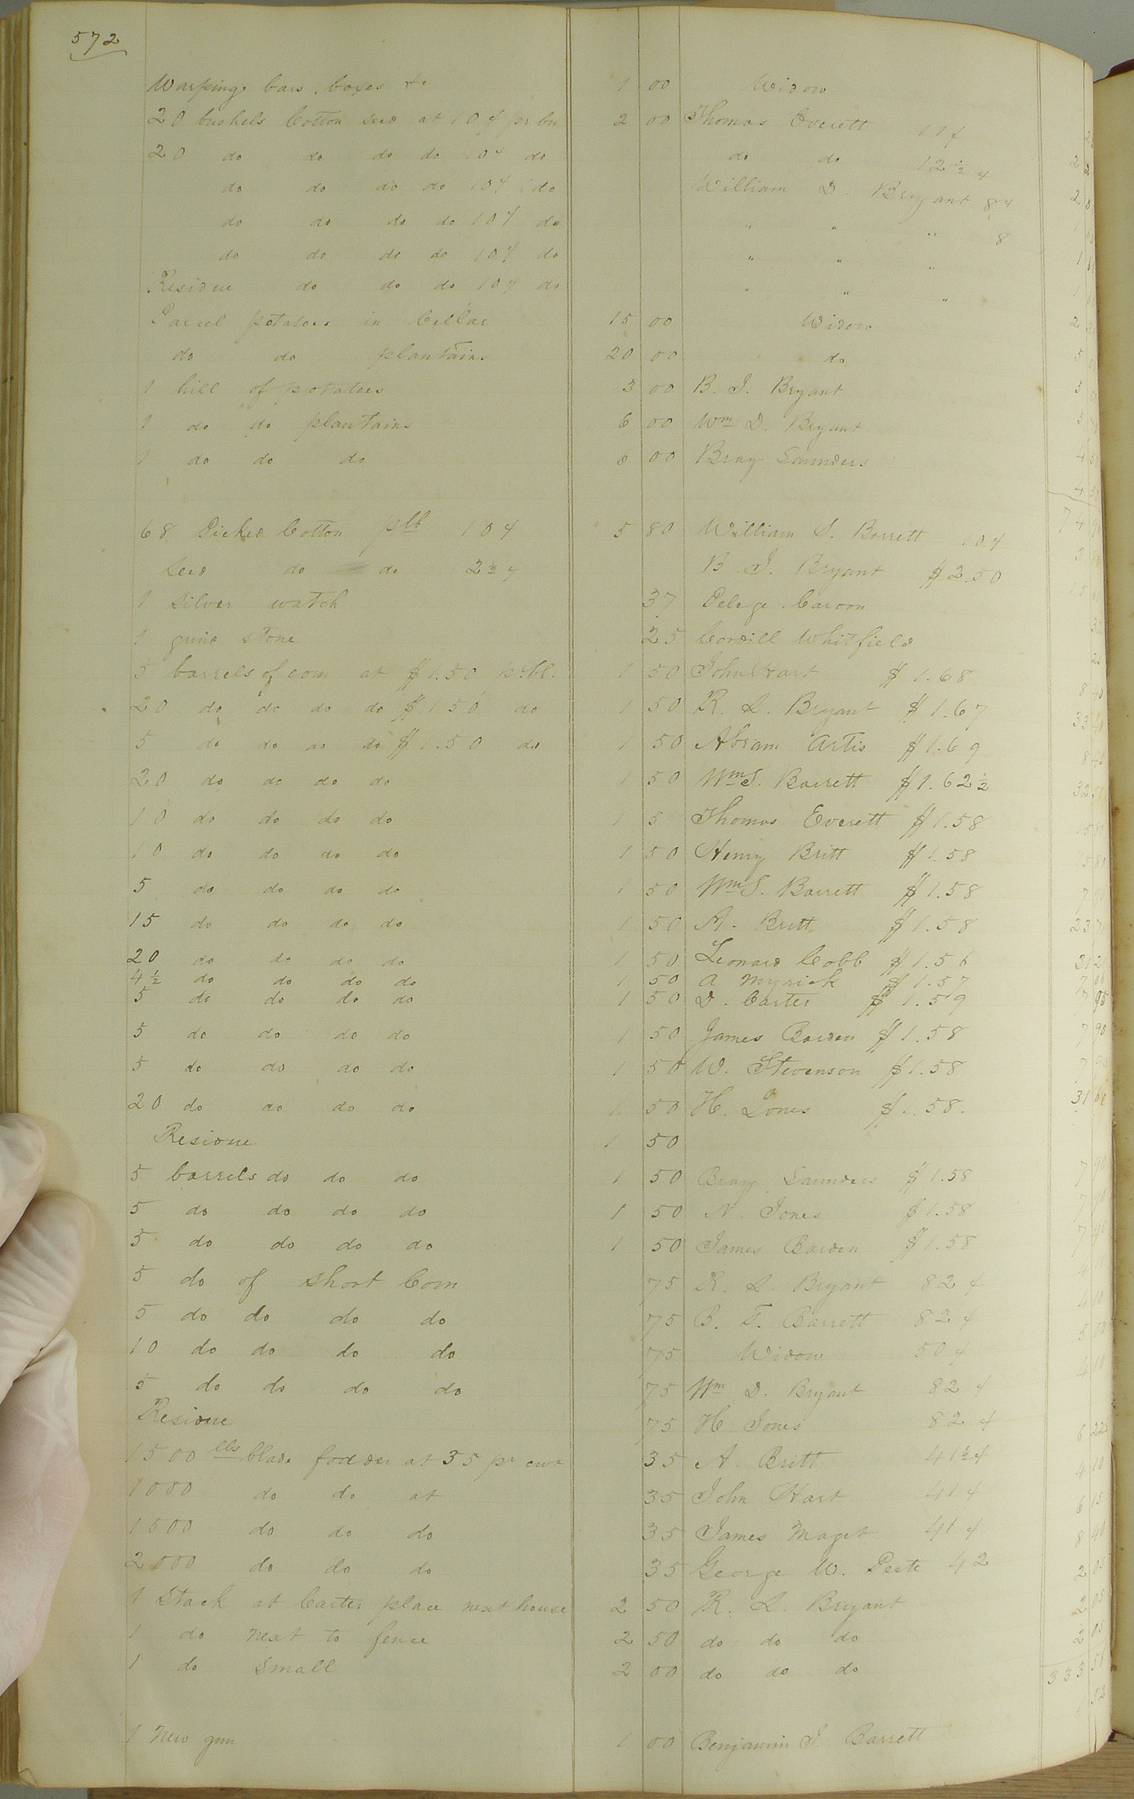 572
Warping bars, boxes &c 1 00 Widow
20 bushels Cotton seed at 10 ¢ pr bu 2 00 Thomas Everett 11 ¢
20 do do do do 10 ¢ do do do 12 ½ ¢
do do do do 10 ¢ do William D. Bryant 8 ¢
do do do do 10 ¢ do " " " 8
do do do do 10 ¢ do " " "
Residue do do do 10 ¢ do " " "
Parcel potatoes in Cellar 15 00 Widow
do do plantains 20 00 do
1 hill of potatoes 3 00 B. J. Bryant
1 do do plantains 6 00 Wm D. Bryant
1 do do do 8 00 Bray Saunders
68 Picked Cotton p lb 10 ¢ 5 80 William S. Barrett 10 ¢
Seed do do 2 ½ ¢ B. J. Bryant $2.50
1 Silver watch 37 Pelege
1 grind stone 25 Cordill Whitfield
5 barrels of corn at $1.50 pr bl. 1 50 John Hart $1.68
20 do do do do $1.50 do 1 50 R. L. Bryant $1.67
5 do do do do $1.50 do 1 50 Abram Artis $1.69
20 do do do do 1 50 Wm S. Barrett $1.62 ½
10 do do do do 1 5 Thomas Everett $1.58
10 do do do do 1 50 Henry Britt $1.58
5 do do do do 1 50 Wm S. Barrett $1.58
15 do do do do 1 50 A. Britt $1.58
20 do do do do 1 50 Leonard Cobb $1.56
4 ½ do do do do 1 50 A Myrick $1.57
5 do do do do 1 50 D. Carter $1.59
5 do do do do 1 50 James Barden $1.58 7 90
5 do do do do 1 50 W. Stevenson $1.58
20 do do do do 1 50 H. Jones $1.58.
Residue 1 50
5 barrels do do do 1 50 Bray Saunders $1.58
5 do do do do 1 50 N. Jones $1.58
5 do do do do 1 50 James Barden $1.58
5 do of short Corn 75 R. L. Bryant 82 ¢
5 do do do do 75 B. T. Barrett 82 ¢
10 do do do do 75 Widow 50 ¢
5 do do do do 75 Wm D. Bryant 82 ¢
Residue 75 H Jones 82 ¢
1500 lbs blade fodder at 35 pr cwt 35 A. Britt 41 ½ ¢
1000 do do at 35 John Hart 41 ¢
1500 do do do 35 James Maget 41 ¢
2000 do do do 35 George W. Peete 42
1 Stack at Carter place next house 2 50 R. L. Bryant
1 do next to fence 2 50 do do do
1 do Small 2 00 do do do
1 New gun 1 00 Benjamin J. Barrett